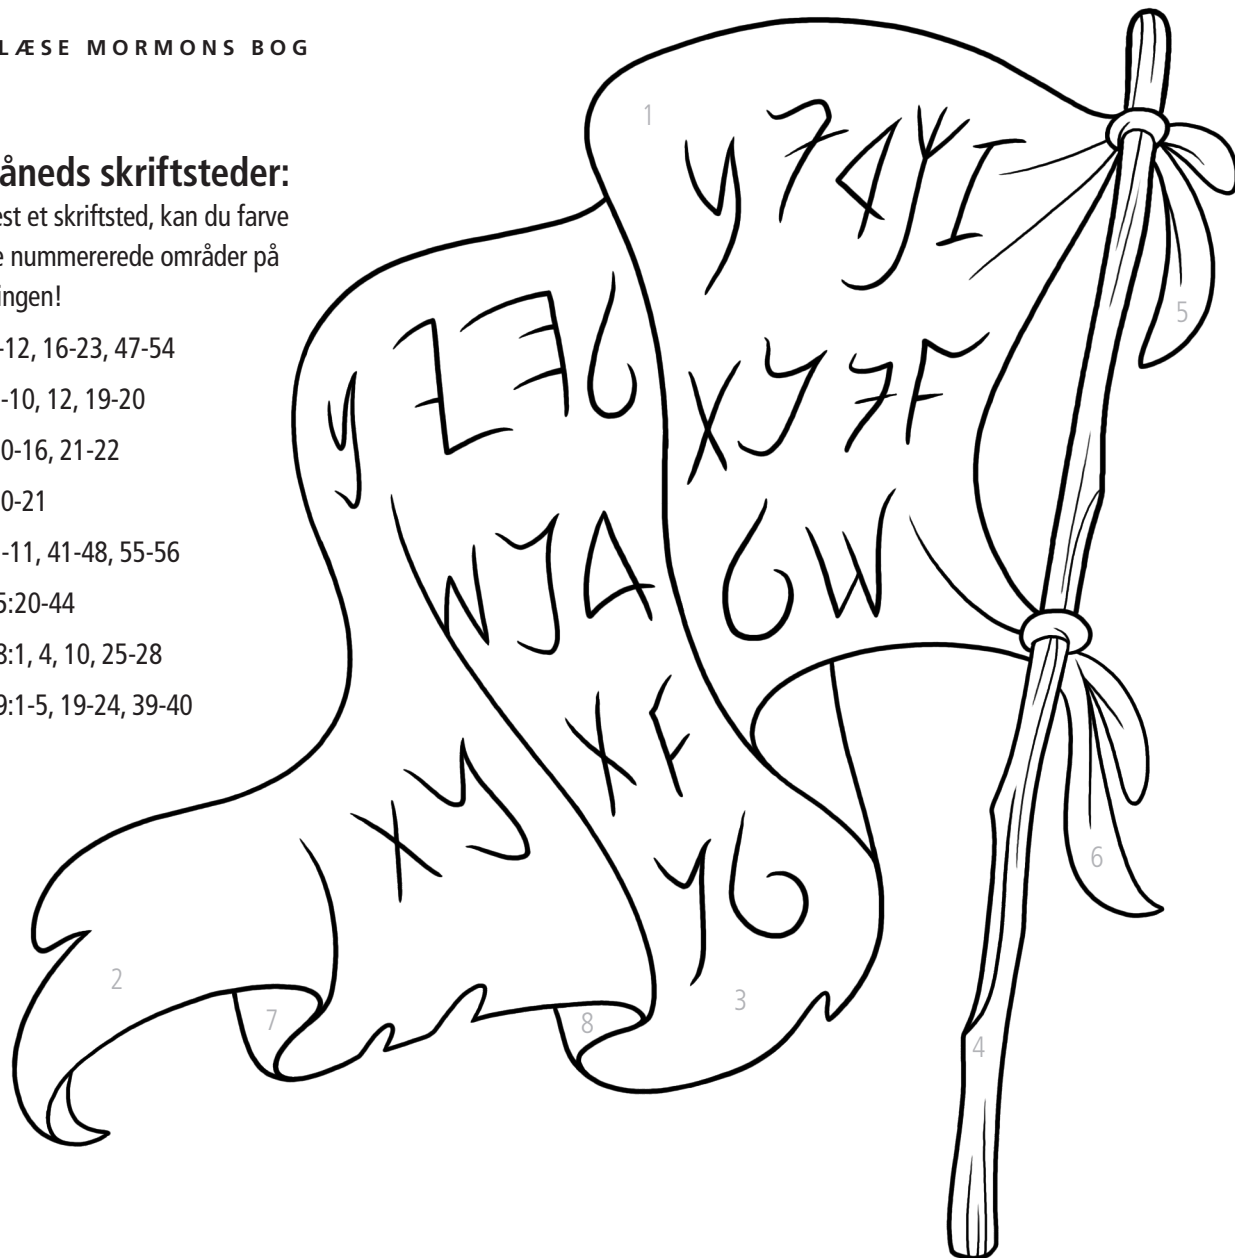 LÆSE MORMONS BOG
åneds skriftsteder:
est et skriftsted, kan du farve
e nummererede områder på
ingen!
-12, 16-23, 47-54
-10, 12, 19-20
0-16, 21-22
0-21
-11, 41-48, 55-56
5:20-44
8:1, 4, 10, 25-28
9:1-5, 19-24, 39-40
1
5
6
2
7
8
3
4